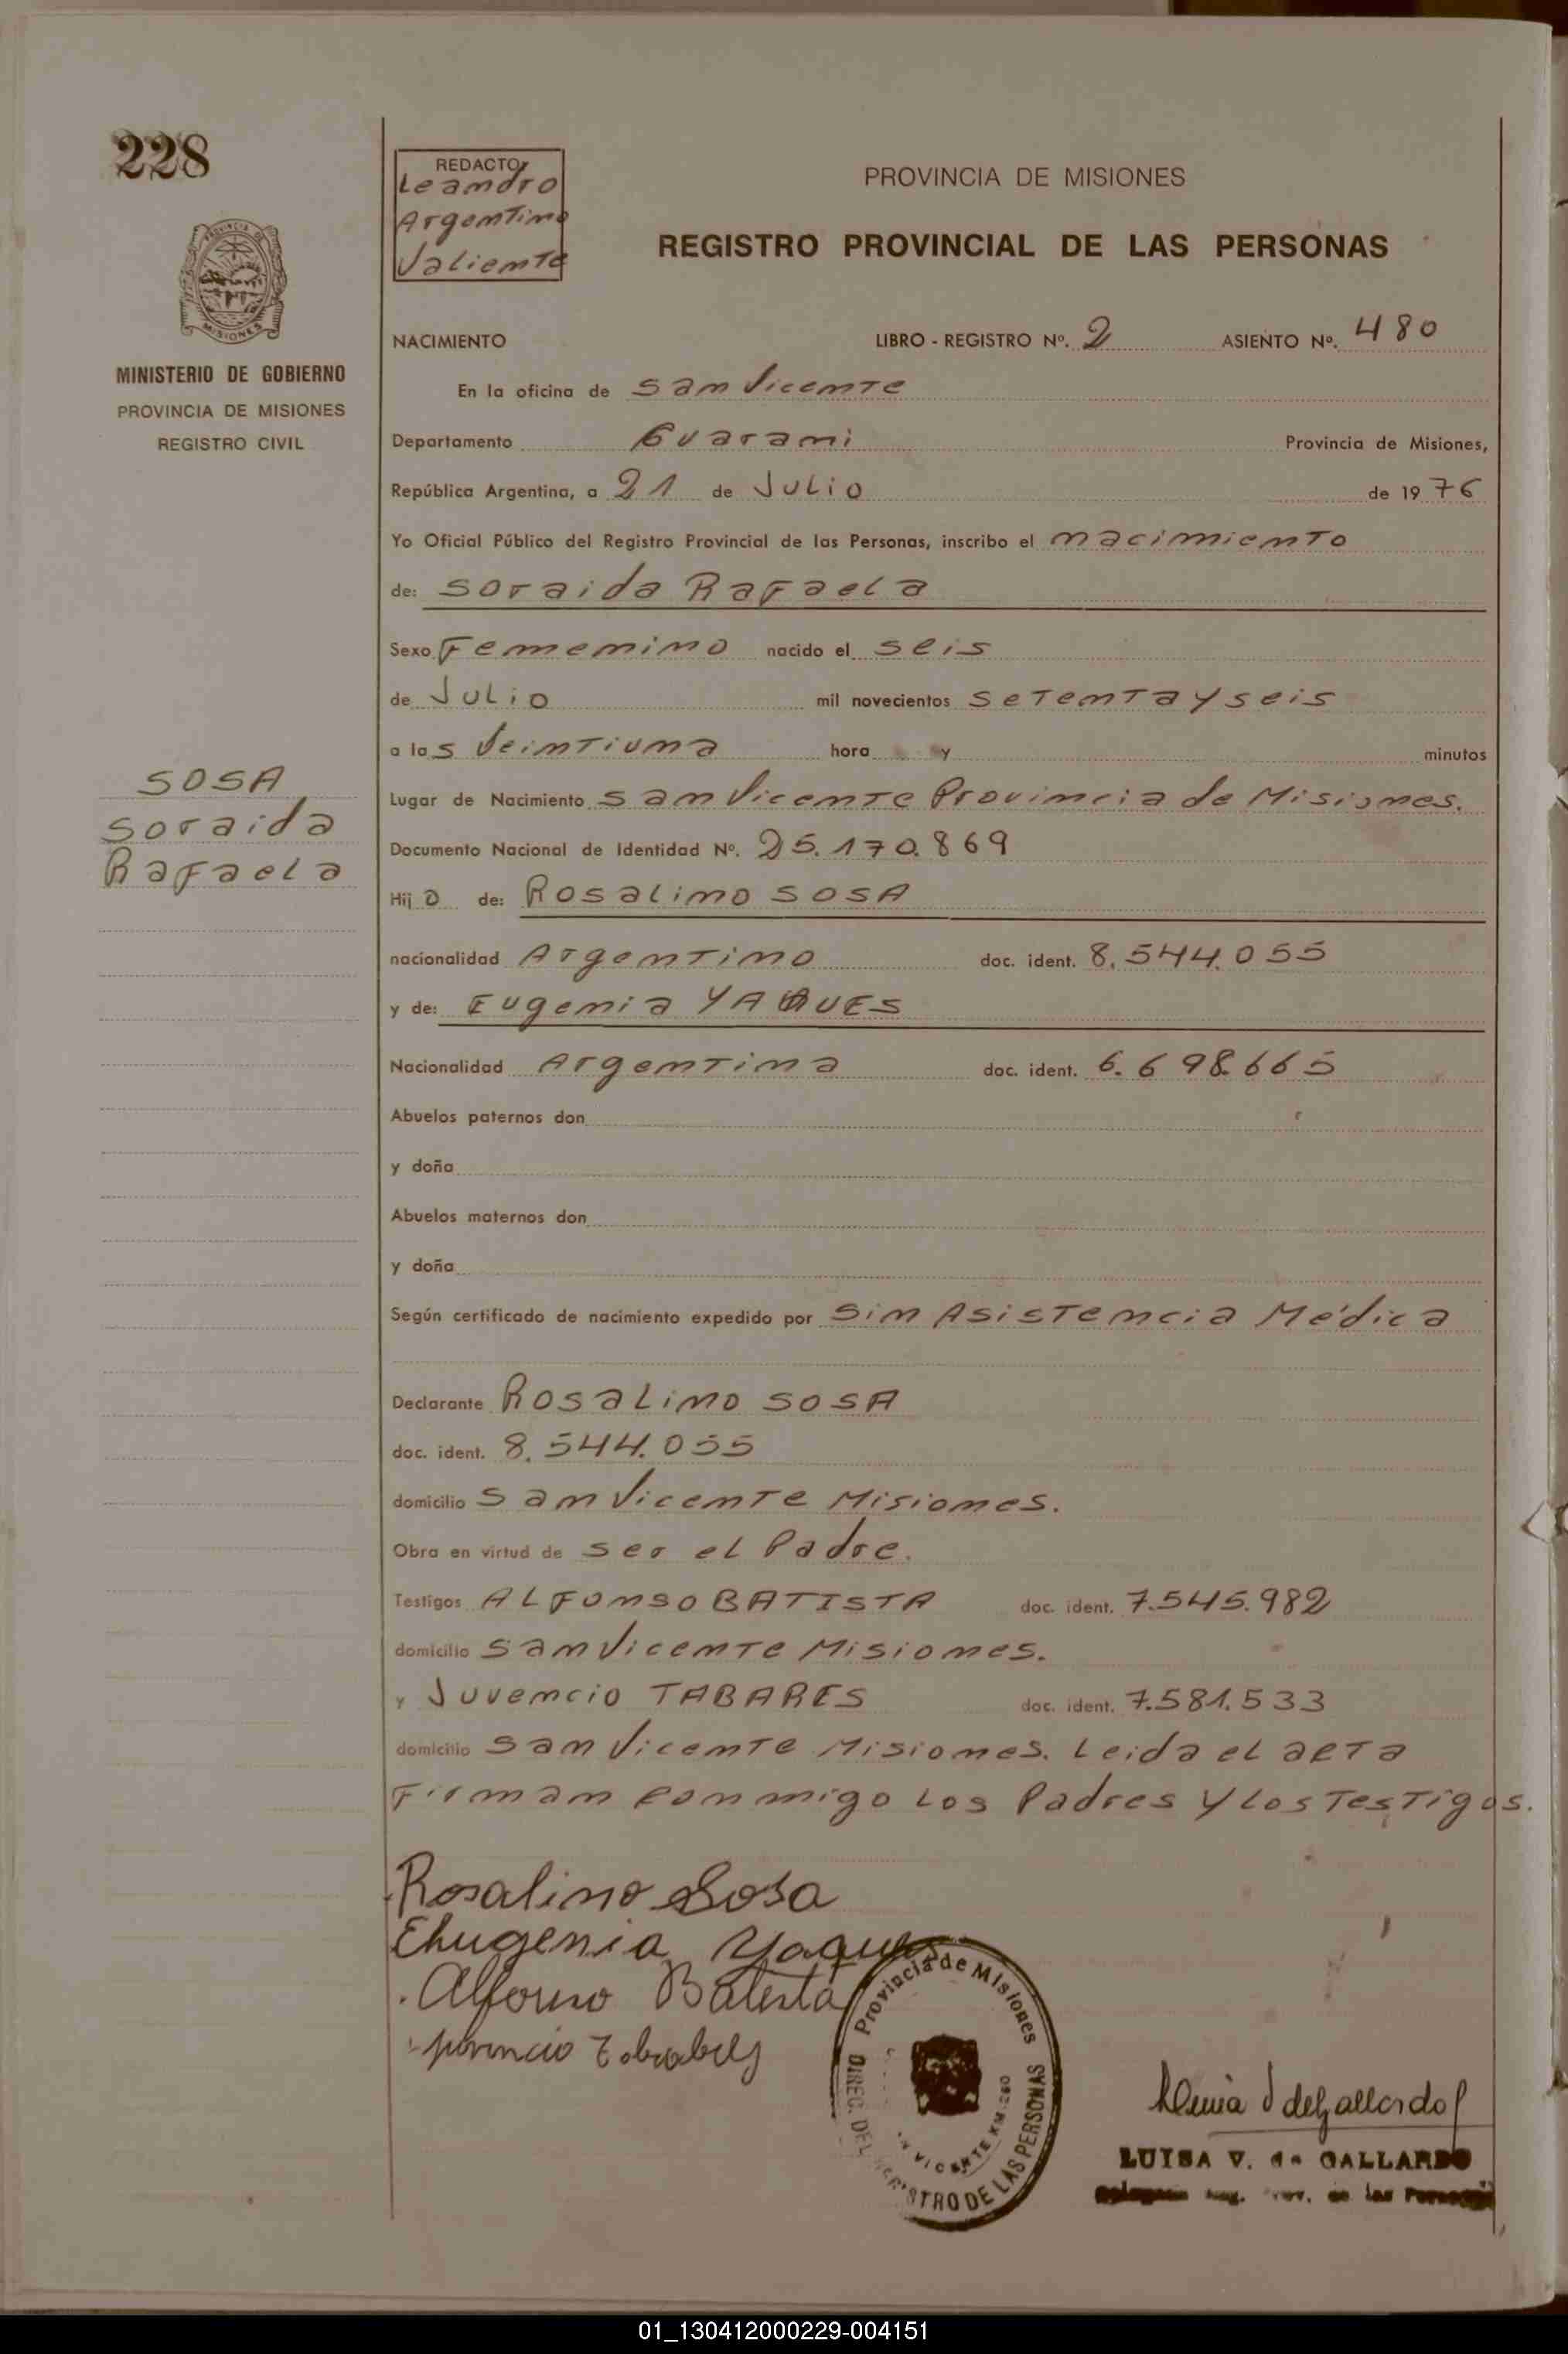 228
REDACTO
Leandro
Argentino
Valiente
PROVINCIA DE MISIONES
REGISTRO PROVINCIAL DE LAS PERSONAS
MISIONES
MINISTERIO DE GOBIERNO
PROVINCIA DE MISIONES
REGISTRO CIVIL
NACIMIENTO LIBRO - REGISTRO Nº. 2 ASIENTO Nº. 480
En la oficina de San Vicente
Departamento Guarani Provincia de Misiones,
República Argentina, a 21 de Julio de 1976
Yo Oficial Público del Registro Provincial de las Personas, inscribo el nacimiento
de: Soraida Rafaela
Sexo Femenino nacido el seis
de Julio mil novecientos setenta y seis
a las Veintiuna hora y minutos
SOSA
Soraida
Rafaela
Lugar de Nacimiento San Vicente Provincia de Misiones.
Documento Nacional de Identidad Nº. 25.170.869
Hija de: Rosalino SOSA
nacionalidad Argentino doc. ident. 8.544.055
y de: Eugenia YAQUES
Nacionalidad Argentina doc. ident. 6.698.665
Abuelos paternos don
y doña
Abuelos maternos don
y doña
Según certificado de nacimiento expedido por Sin Asistencia Médica
Declarante Rosalino SOSA
doc. ident. 8.544.055
domicilio San Vicente Misiones.
Obra en virtud de ser el Padre.
Testigos ALFONSO BATISTA doc. ident. 7.545.982
domicilio San Vicente Misiones.
y Juvencio TABARES doc. ident. 7.581.533
domicilio San Vicente Misiones. Leida el acta
Firman conmigo los Padres y los Testigos.
Rosalino Sosa
Ehugenia Yaques
Alfonso Batista
Provincia de Misiones
DIREC. DEL REGISTRO DE LAS PERSONAS
VICENTE KM. 260
de Gallardo
LUISA V. de GALLARDO
de las
01_130412000229-004151